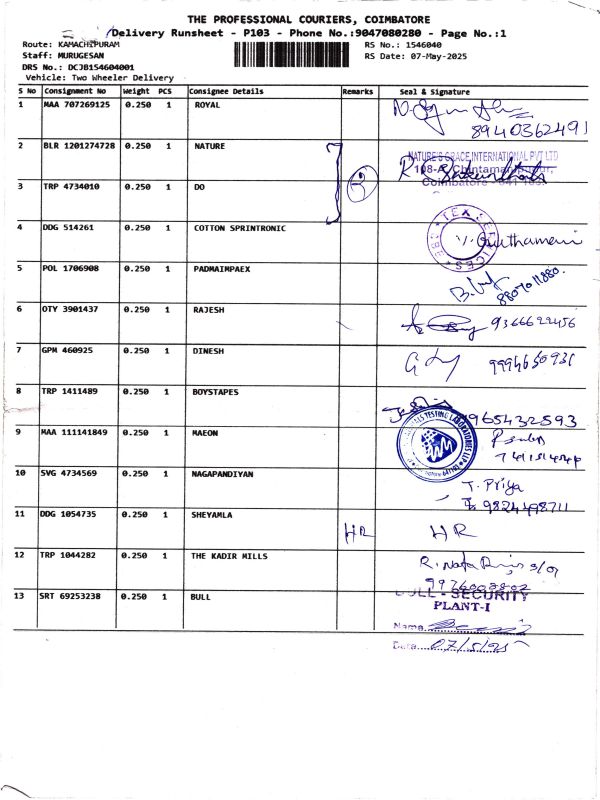 THE PROFESSIONAL COURIERS, COIMBATORE
Delivery Runsheet - P103 - Phone No.:9047080280 - Page No.:1
Route: KAMACHIPURAM
RS No.: 1546040
Staff: MURUGESAN
RS Date: 07-May-2025
DRS No.: DCJB154604001
Vehicle: Two Wheeler Delivery
S No Consignment No Weight PCS Consignee Details Remarks Seal & Signature
1 MAA 707269125 0.250 1 ROYAL
8940362491
2 BLR 1201274728 0.250 1 NATURE
NATURE'S GRACE INTERNATIONAL PVT LTD
3 TRP 4734010 0.250 1 DO
Coimbatore
4 DDG 514261 0.250 1 COTTON SPRINTRONIC
TEX SERVICES
5 POL 1706908 0.250 1 PADMAIMPAEX
8807011880.
6 OTY 3901437 0.250 1 RAJESH 9366622456
7 GPM 460925 0.250 1 DINESH
8 TRP 1411489 0.250 1 BOYSTAPES
965432593
9 MAA 111141849 0.250 1 MAEON
TESTING LABORATORIES LLP
10 SVG 4734569 0.250 1 NAGAPANDIYAN
T. Priya
9824498711
11 DDG 1054735 0.250 1 SHEYAMLA HR HR
12 TRP 1044282 0.250 1 THE KADIR MILLS
13 SRT 69253238 0.250 1 BULL
BULL - SECURITY
PLANT-I
Name
Date 07/5/25